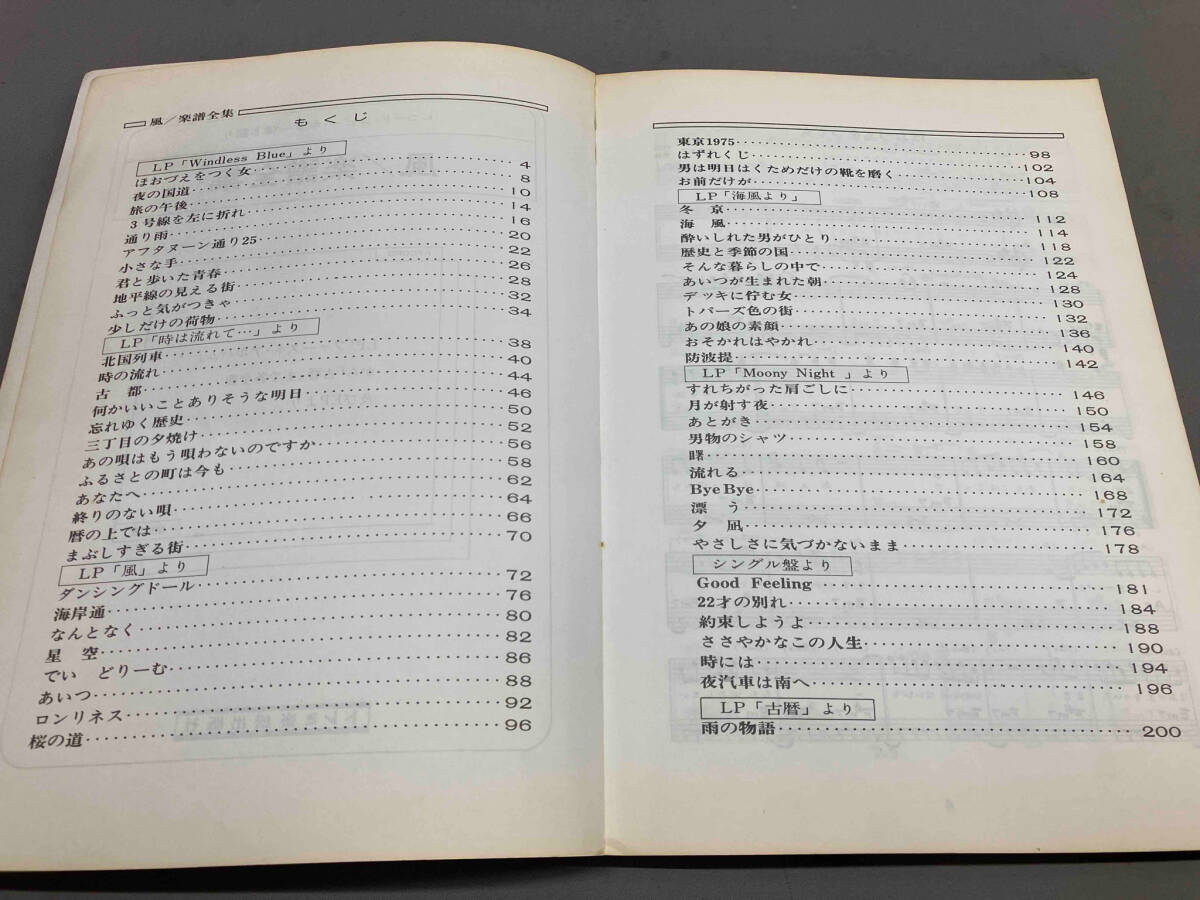 風／楽譜全集
もくじ
LP「Windless Blue」より
ほおづえをつく女 4
夜の国道 8
旅の午後 10
3号線を左に折れ 14
通り雨 16
アフタヌーン通り25 20
小さな手 22
君と歩いた青春 26
地平線の見える街 28
ふっと気がつきゃ 32
少しだけの荷物 34
LP「時は流れて…」より
北国列車 38
時の流れ 40
古　都 44
何かいいことありそうな明日 46
忘れゆく歴史 50
三丁目の夕焼け 52
あの唄はもう唄わないのですか 56
ふるさとの町は今も 58
あなたへ 62
終りのない唄 64
暦の上では 66
まぶしすぎる街 70
LP「風」より
ダンシングドール 72
海岸通 76
なんとなく 80
星　空 82
でい　どりーむ 86
あいつ 88
ロンリネス 92
桜の道 96
東京1975 98
はずれくじ 102
男は明日はくためだけの靴を磨く 104
お前だけが 108
LP「海風より」
冬　京 112
海　風 114
酔いしれた男がひとり 118
歴史と季節の国 122
そんな暮らしの中で 124
あいつが生まれた朝 128
デッキに佇む女 130
トパーズ色の街 132
あの娘の素顔 136
おそかれはやかれ 140
防波提 142
LP「Moony Night 」より
すれちがった肩ごしに 146
月が射す夜 150
あとがき 154
男物のシャツ 158
曙 160
流れる 164
Bye Bye 168
漂　う 172
夕　凪 176
やさしさに気づかないまま 178
シングル盤より
Good Feeling 181
22才の別れ 184
約束しようよ 188
ささやかなこの人生 190
時には 194
夜汽車は南へ 196
LP「古暦」より
雨の物語 200